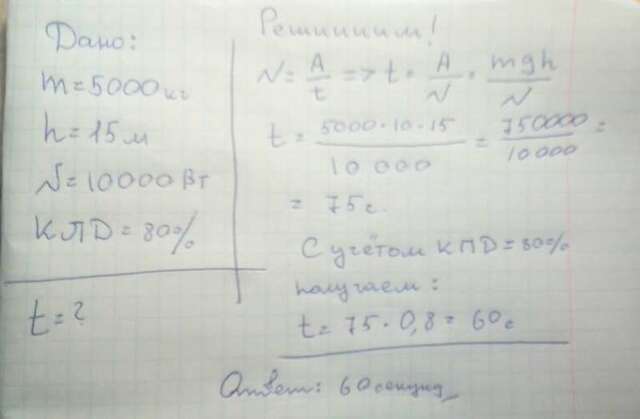 Дано:
m=5000кг
h=15м
N=10000Вт
КПД=80%
t=?
Решииим!
N=A/t => t=A/N=mgh/N
t=5000·10·15/10 000=750000/10000=
= 75с.
С учётом КПД=80%
получаем:
t=75·0,8=60с
Ответ: 60 секунд